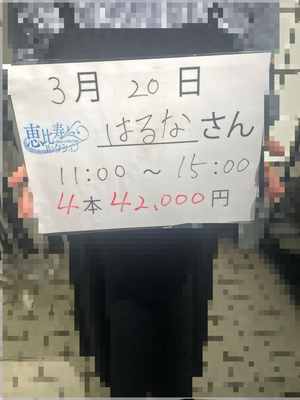 3月 20日
恵比寿 はるなさん
11:00 ～ 15:00
4本 42,000円